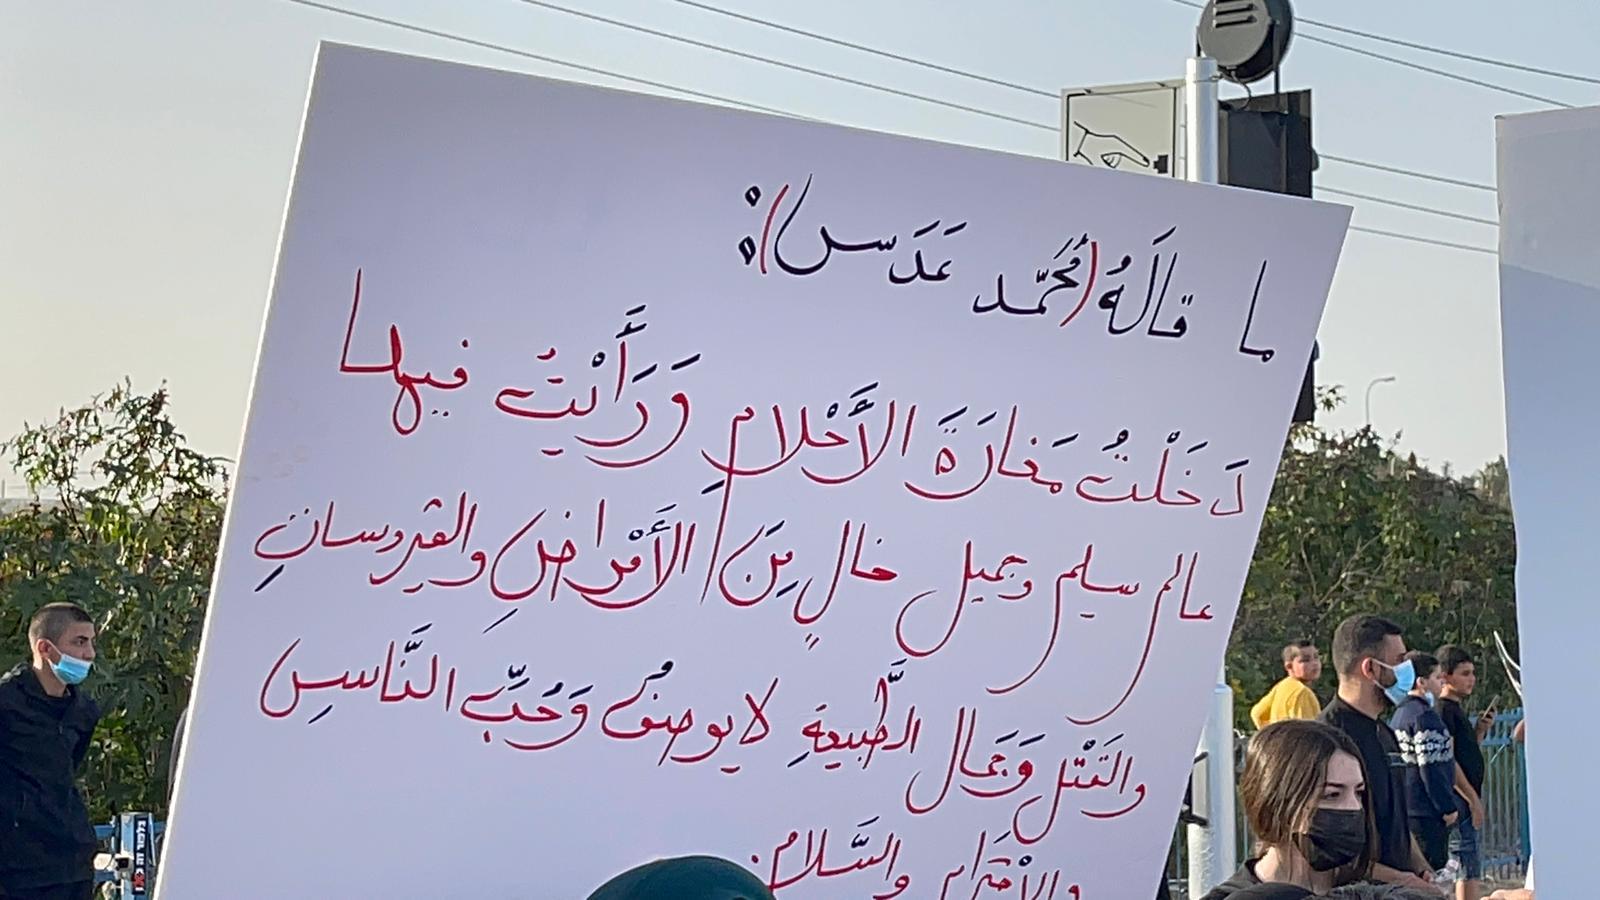 ما قالَهُ (مُحَمَّد عَدَس):
دَخَلْتُ مَغارَةَ الأَحْلامِ وَرَأَيْتُ فيها
عالم سليم وجميل خالٍ مِنَ الأَمْراضِ والفيروساتِ
والقَتْل وَجَمال الطَّبيعةِ لا يوصَفُ وَحُبِّ النَّاسِ
والاحْتِرام والسَّلام.